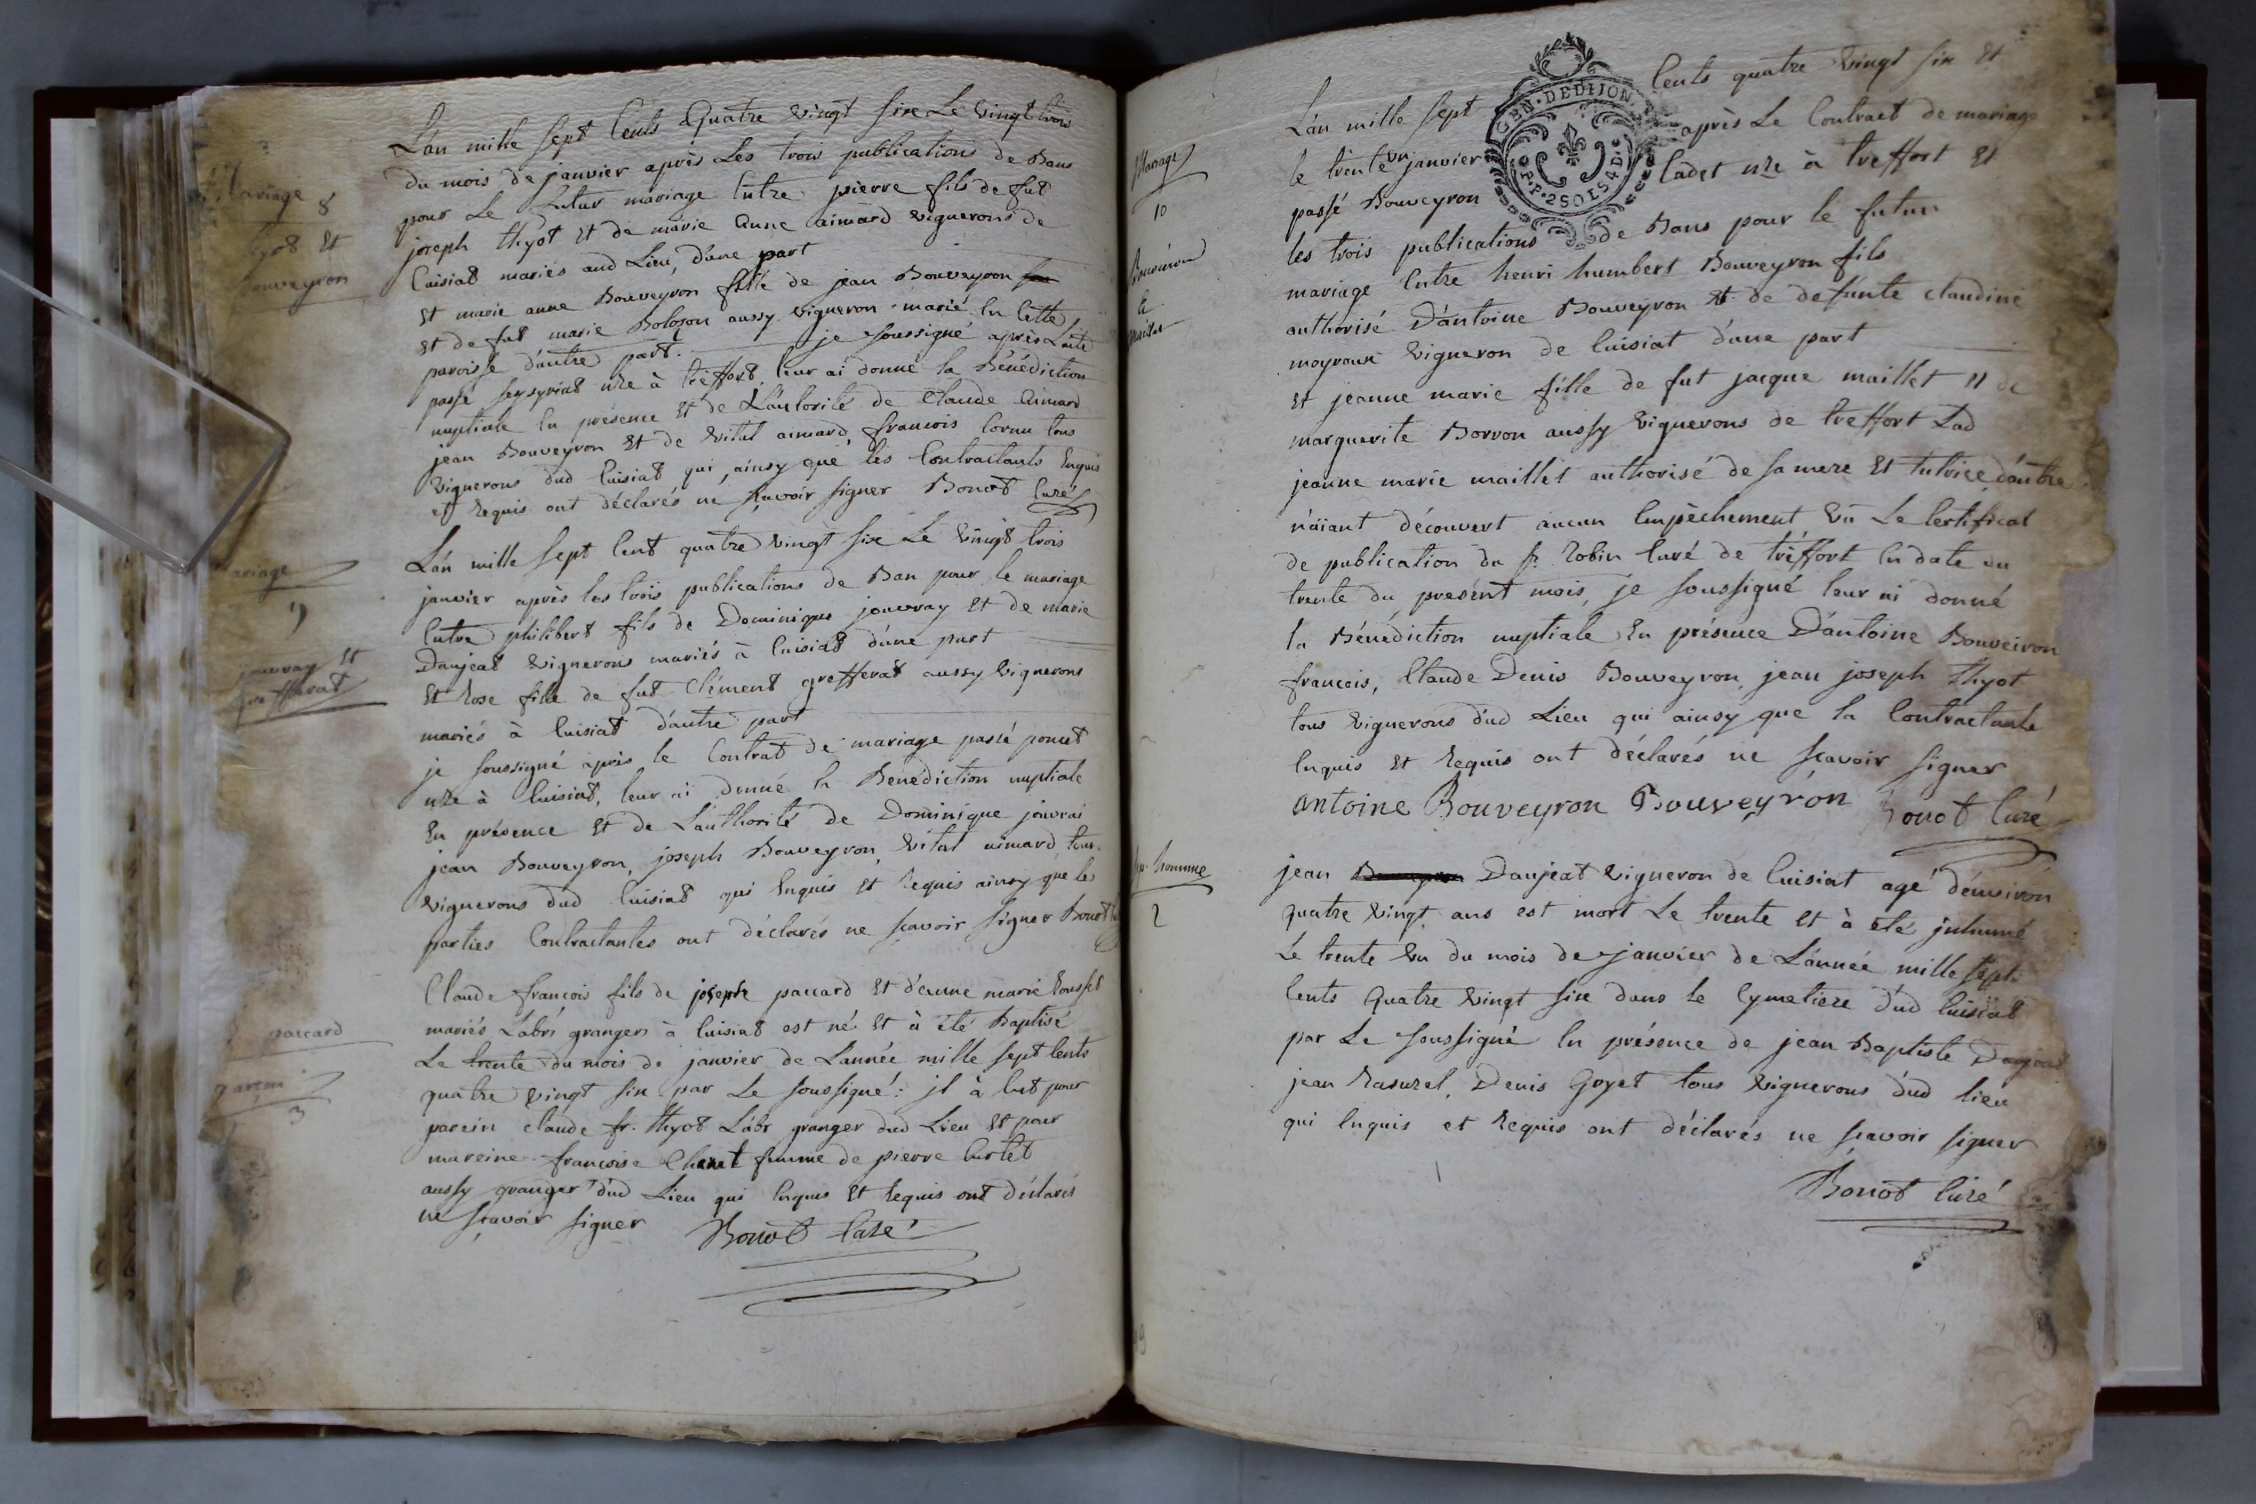 Mariage
8
thyot Et
Bouveyron
L'an mille sept Cents Quatre vingt six Le vingt trois
du mois de janvier après Les trois publications de Bans
pour Le futur mariage Entre pierre fils de fut
joseph thyot Et de marie anne aimard vignerons de
Cuisiat mariés aud Lieu, d'une part
Et marie anne Bouveyron fille de jean Bouveyron
Et de fut marie Bolozon aussy vigneron marié En Cette
paroisse d'autre part. je soussigné après
passé nre à treffort, leur ai donné la Bénédiction
nuptiale En présence Et de L'autorité de Claude aimard
jean Bouveyron Et de vital aimard, francois Cornu tous
vignerons dud Cuisiat qui, ainsy que les Contractants Enquis
et Requis ont déclarés ne sçavoir signer Bonot Curé
mariage
9
jouvray Et
grefferat
L'an mille sept Cent quatre vingt six Le vingt trois
janvier après les trois publications de Ban pour le mariage
Entre philibert fils de Dominique jouvray Et de marie
Danjeat vignerons mariés à Cuisiat d'une part
Et Rose fille de fut Clément grefferat aussy vignerons
mariés à Cuisiat d'autre part
je soussigné après le Contrat de mariage passé poncet
nre à Cuisiat, leur ai donné la Bénédiction nuptiale
En présence Et de L'authorité de Dominique jouvrai
jean Bouveyron, joseph Bouveyron, vital aimard tous
vignerons dud Cuisiat qui Enquis Et Requis ainsy que les
parties Contractantes ont déclarés ne sçavoir signer Bonot
paccard
garçon
3
Claude francois fils de joseph paccard Et d'anne marie Rousset
mariés Labrs grangers à Cuisiat est né Et à été Baptisé
Le trente du mois de janvier de L'année mille sept Cents
quatre vingt six par Le soussigné: il à Eut pour
parein claude fr. thyot Labr granger dud Lieu Et pour
mareine francoise Chanet femme de pierre Curtet
aussy granger dud Lieu qui Enquis Et Requis ont déclarés
ne sçavoir signer Bonot Curé
Mariage
10
Bouveiron
&
maillet
GEN. DE DIJON
P.P. 2 SOLS 4 D.
L'an mille sept Cents quatre vingt six Et
le trente un janvier après Le Contract de mariage
passé Bouveyron Cadet nre à treffort Et
les trois publications de Bans pour le futur
mariage Entre henri humbert Bouveyron fils
authorisé D'antoine Bouveyron Et de defunte claudine
moyroux vigneron de Cuisiat d'une part
Et jeanne marie fille de fut jacque maillet Et de
marguerite Borron aussy vignerons de treffort Lad
jeanne marie maillet authorisé de sa mere Et tutrice d'autre
n'aiant découvert aucun Empèchement vû Le Certificat
de publication du sr. Robin Curé de tréffort En date du
trente du présent mois, je soussigné leur ai donné
la Bénédiction nuptiale En présence D'antoine Bouveiron
francois, Claude Denis Bouveyron, jean joseph thyot
tous vignerons dud Lieu qui ainsy que la Contractante
Enquis Et Requis ont déclarés ne sçavoir signer
antoine Bouveyron Bouveyron Bonot Curé
homme
2
jean Danjeat vigneron de Cuisiat agé d'environ
quatre vingt ans est mort Le trente Et à été jnhumé
Le trente un du mois de janvier de L'année mille sept
Cents Quatre vingt six dans Le Cymetiere dud Cuisiat
par Le soussigné En présence de jean Baptiste Danjeat
jean Rasurel, Denis Goyet tous vignerons dud lieu
qui Enquis et Requis ont déclarés ne sçavoir signer
Bonot Curé